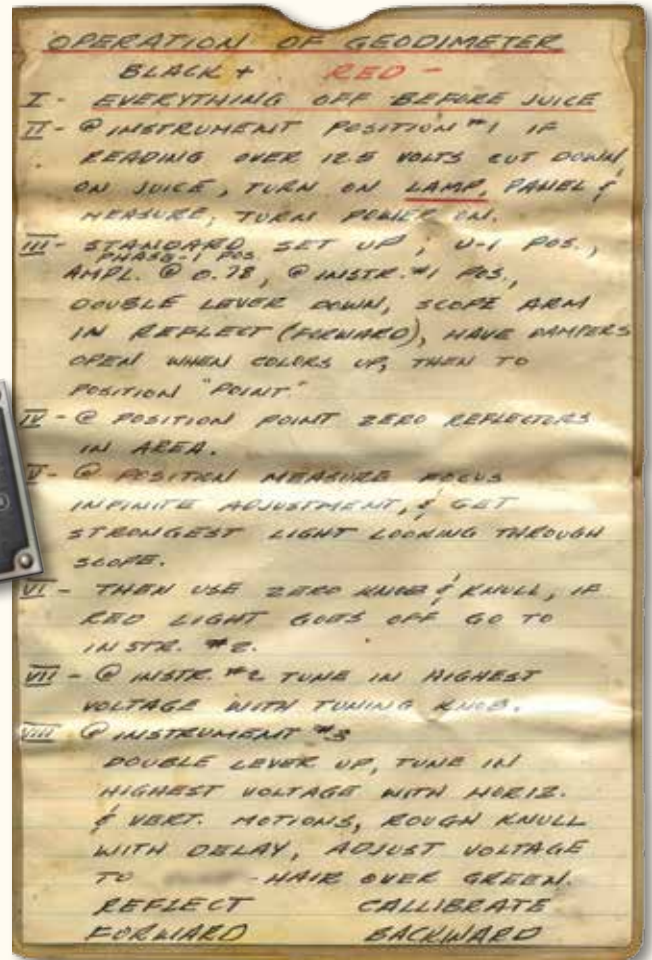 OPERATION OF GEODIMETER
BLACK + RED -
I - EVERYTHING OFF BEFORE JUICE
II - @ INSTRUMENT POSITION #1 IF
READING OVER 12.5 VOLTS CUT DOWN
ON JUICE, TURN ON LAMP, PANEL &
MEASURE, TURN POWER ON.
III - STANDARD SET UP; U-1 POS.,
PHASE-1 POS
AMPL. @ 0.78, @ INSTR. #1 POS.,
DOUBLE LEVER DOWN, SCOPE ARM
IN REFLECT (FORWARD), HAVE DAMPERS
OPEN WHEN COLORS UP, THEN TO
POSITION "POINT"
IV - @ POSITION POINT ZERO REFLECTORS
IN AREA.
V - @ POSITION MEASURE FOCUS
INFINITE ADJUSTMENT, & GET
STRONGEST LIGHT LOOKING THROUGH
SCOPE.
VI - THEN USE ZERO KNOB & KNULL, IF
RED LIGHT GOES OFF GO TO
INSTR. #2.
VII - @ INSTR. #2 TUNE IN HIGHEST
VOLTAGE WITH TUNING KNOB.
VIII @ INSTRUMENT #3
DOUBLE LEVER UP, TUNE IN
HIGHEST VOLTAGE WITH HORIZ.
& VERT. MOTIONS, ROUGH KNULL
WITH DELAY, ADJUST VOLTAGE
TO - HAIR OVER GREEN.
REFLECT CALLIBRATE
FORWARD BACKWARD